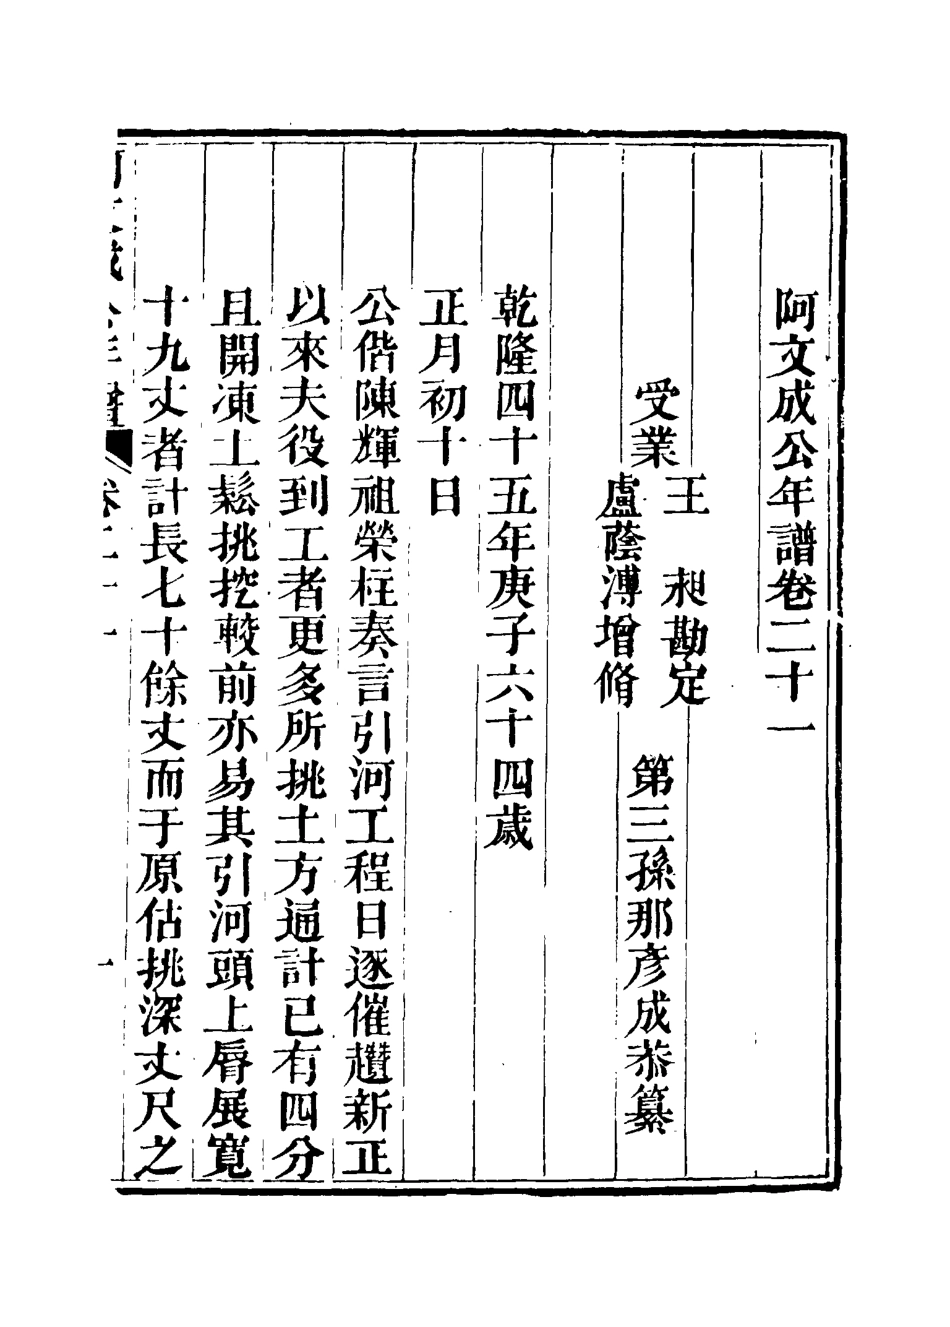 阿文成公年譜卷二十一
第三孫那彥成恭纂
受業
王　昶勘定
盧蔭溥增脩
乾隆四十五年庚子六十四歲
正月初十日
公偕陳輝祖榮柱奏言引河工程日逐催趲新正
以來夫役到工者更多所挑土方通計已有四分
且開凍土鬆挑挖較前亦易其引河頭上脣展寬
十九丈者計長七十餘丈而于原估挑深丈尺之
阿文成公年譜　卷二十一　一